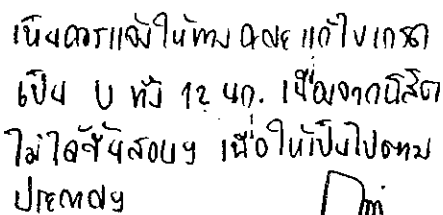 เห็นควรแจ้งให้ทาง คณะ แก้ไขเกรด
เป็น U ทั้ง 12 นก. เนื่องจากนิสิต
ไม่ได้ขึ้นสอบฯ เพื่อให้เป็นไปตาม
ประกาศฯ